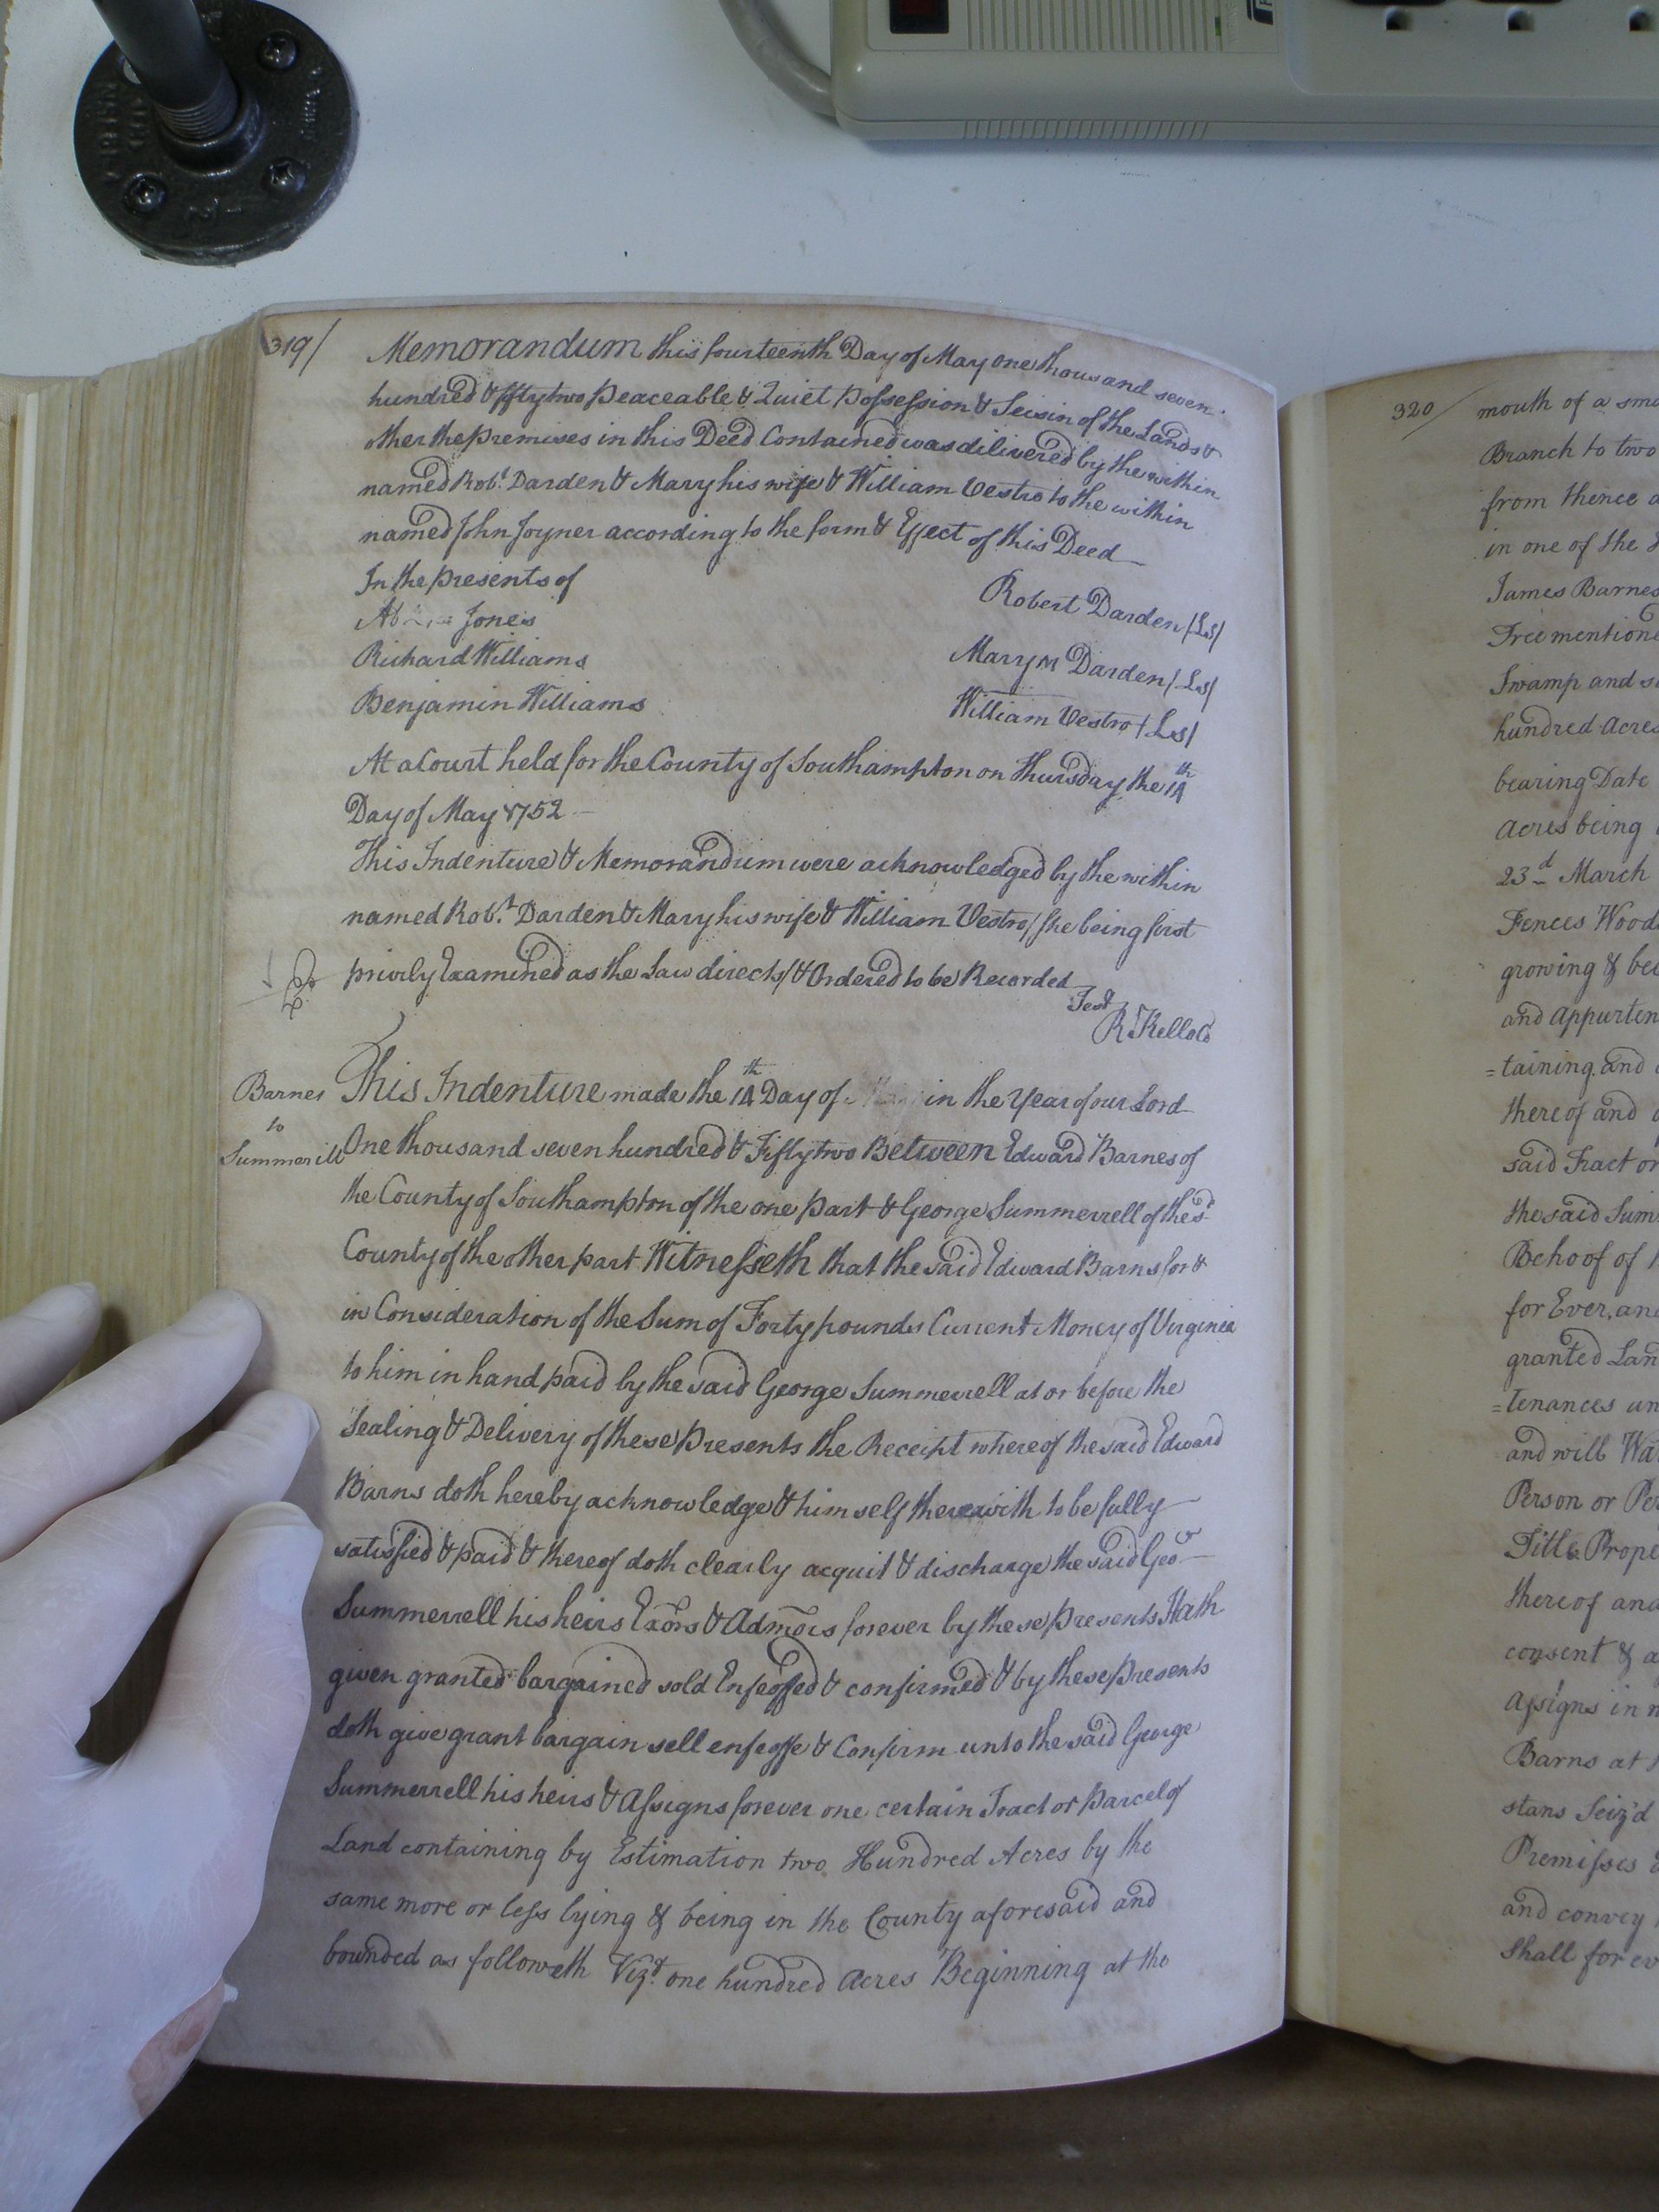 319/
Memorandum this fourteenth Day of May one thousand seven
hundred & fftytwo peaceable & Quiet Possession & Seisin of the Lands &
other the premises in this Deed Contained was dilivered by the within
named Robt. Darden & Mary his wife & William Vestro to the within
named John Joyner according to the form & Effect of this Deed
In the presents of
Robert Darden /Ls/
Jones
Richard Williams
Mary M Darden /Ls/
Benjamin Williams
William Vestro /Ls/
At a Court held for the County of Southampton on Thursday the 14th
Day of May 1752
This Indenture & Memorandum were acknowledged by the within
named Robt. Darden & Mary his wife & William Vestro /she being first
privily Examined as the Law directs/ & Ordered to be Recorded
Test
R. Kello Cl
Barnes
to
Summerill
This Indenture made the 14th Day of May in the Year of our Lord
One thousand seven hundred & Fifty two Between Edward Barnes of
the County of Southampton of the one part & George Summerrell of the sd
County of the other part Witnesseth that the said Edward Barns for &
in Consideration of the Sum of Forty pounds Current Money of Virginia
to him in hand paid by the said George Summerrell at or before the
Sealing & Delivery of these presents the Receipt whereof the said Edward
Barns doth hereby acknowledge & himself therewith to be fully
satisfied & paid & thereof doth clearly acquit & discharge the said Geo
Summerrell his heirs Exors & Admors forever by these presents Hath
given granted bargained sold Enfeoffed & confirmed & by these presents
doth give grant bargain sell enfeoffe & Confirm unto the said George
Summerrell his heirs & Assigns forever one certain Tract or Parcel of
Land containing by Estimation two Hundred Acres by the
same more or less lying & being in the County aforesaid and
bounded as followeth Vizt. one hundred Acres Beginning at the
320/
mouth of a
Branch to two
from thence
in one of the
James Barnes
Tree
Swamp and
hundred Acres
bearing Date
Acres being
23d March
Fences
growing &
and
=taining and
thereof and
said Tract or
the said
Behoof of
for Ever, and
granted
=tenances
and will
Person or
Title
thereof and
consent &
Assigns in
Barns at
stans Seiz'd
Premisses
and convey
Shall for